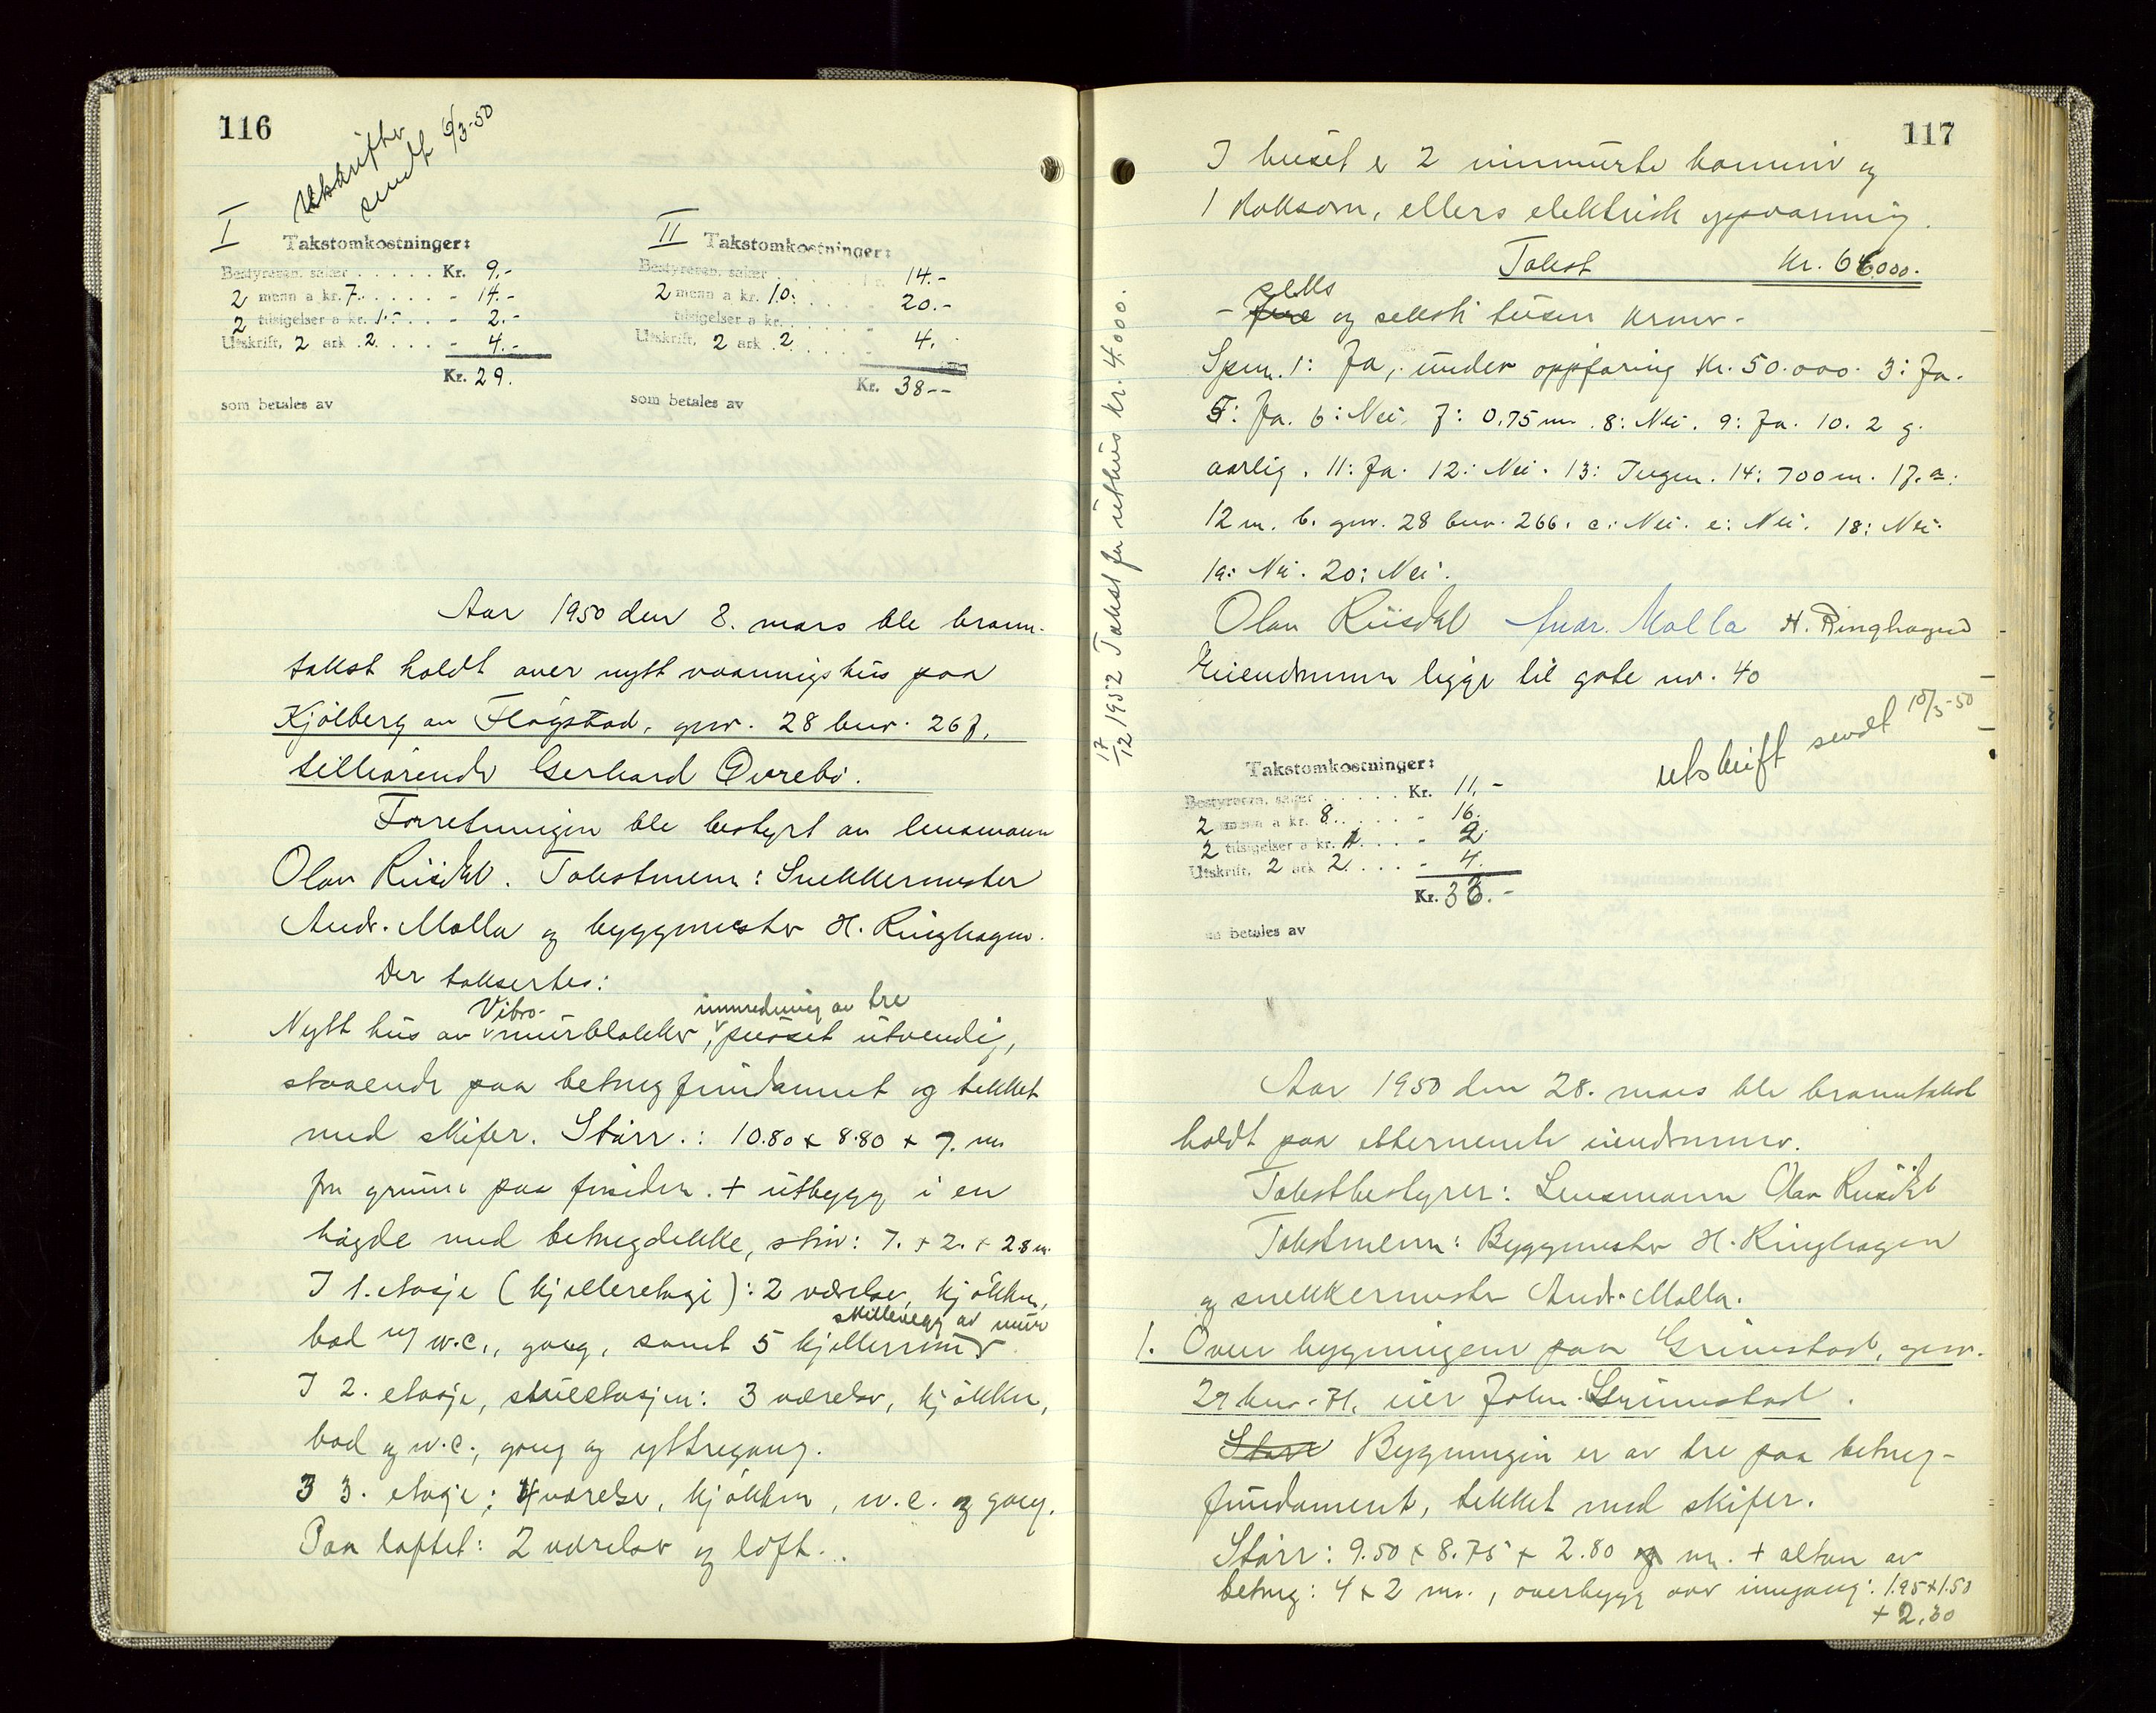 116
Utskrifter
sendt 6/3-50
I
Takstomkostninger:
Bestyreren, salær . . . . . Kr. 9.-
2 menn a kr. 7. . . . . - 14.-
2 tilsigelser a kr. 1.- . . - 2.-
Utskrift, 2 ark 2 . . . . - 4.-
Kr. 29.
som betales av
II
Takstomkostninger:
Bestyreren, salær . . . . . Kr. 14.-
2 menn a kr. 10. . . . . - 20.-
tilsigelser a kr. . . . -
Utskrift, 2 ark 2 . . . . - 4.
Kr. 38--
som betales av
Aar 1950 den 8. mars ble brann-
takst holdt over nytt vaaningshus paa
Kjølberg av Flogstad, gnr. 28 bnr. 267,
tilhørende Gerhard Øvrebø.
Forretningen ble bestyrt av lensmann
Olav Riisdal. Takstmenn: Snekkermester
Andr. Molla og byggmester H. Ringhagen.
Der taksertes:
Vibro- innredning av tre
Nytt hus av murblokker, pusset utvendig,
staaende paa betongfundament og tekket
med skifer. Størr.: 10.80 x 8.80 x 7. m
fra grunn paa forsiden. + utbygg i en
høgde med betongdekke, størr: 7. x 2. x 2.8 m.
I 1. etasje (kjelleretasje): 2 værelser, kjøkken,
skillevegg av mur
bad og w.c., gang, samt 5 kjellerrum
I 2. etasje, stueetasjen: 3 værelser, kjøkken,
bad og w.c., gang og yttregang.
3 3. etasje: 4 værelser, kjøkken, w.c. og gang.
Paa loftet: 2 værelser og loft.
117
I huset er 2 innmurte kaminer og
1 koksovn, ellers elektrisk oppvarming.
Takst Kr. 66.000.
seks
- fire og seksti tusen kroner -
Spm. 1: Ja, under oppføring Kr. 50.000. 3: Ja.
5: Ja. 6: Nei. 7: 0,75 m. 8: Nei. 9: Ja. 10. 2 g.
aarlig. 11: Ja. 12: Nei. 13: Ingen. 14: 700 m. 17. a:
12 m. b. gnr. 28 bnr. 266. c: Nei. e: Nei. 18: Nei.
19: Nei. 20: Nei.
Olav Riisdal Andr. Molla H. Ringhagen
Eiendommen ligger til gate nr. 40
17/12 1952 Takst for uthus kr. 4.000.
utskrift sendt 10/3-50
Takstomkostninger:
Bestyreren, salær . . . . . Kr. 11.-
2 menn a kr. 8. . . . . - 16.
2 tilsigelser a kr. 1. . . . - 2.
Utskrift, 2 ark 2. . . . - 4.
Kr. 33.-
betales av
Aar 1950 den 28. mars ble branntakst
holdt paa etternevnte eiendommer.
Takstbestyrer: Lensmann Olav Riisdal
Takstmenn: Byggmester H. Ringhagen
og snekkermester Andr. Molla.
1. Over bygningene paa Grimstad, gnr.
29 bnr. 71, eier John Grimstad.
Størr Bygningen er av tre paa betong-
fundament, tekket med skifer.
Størr: 9.50 x 8.75 x 2.80 m. + altan av
betong: 4 x 2 m., overbygg over inngang: 1.95 x 1.50
x 2.30